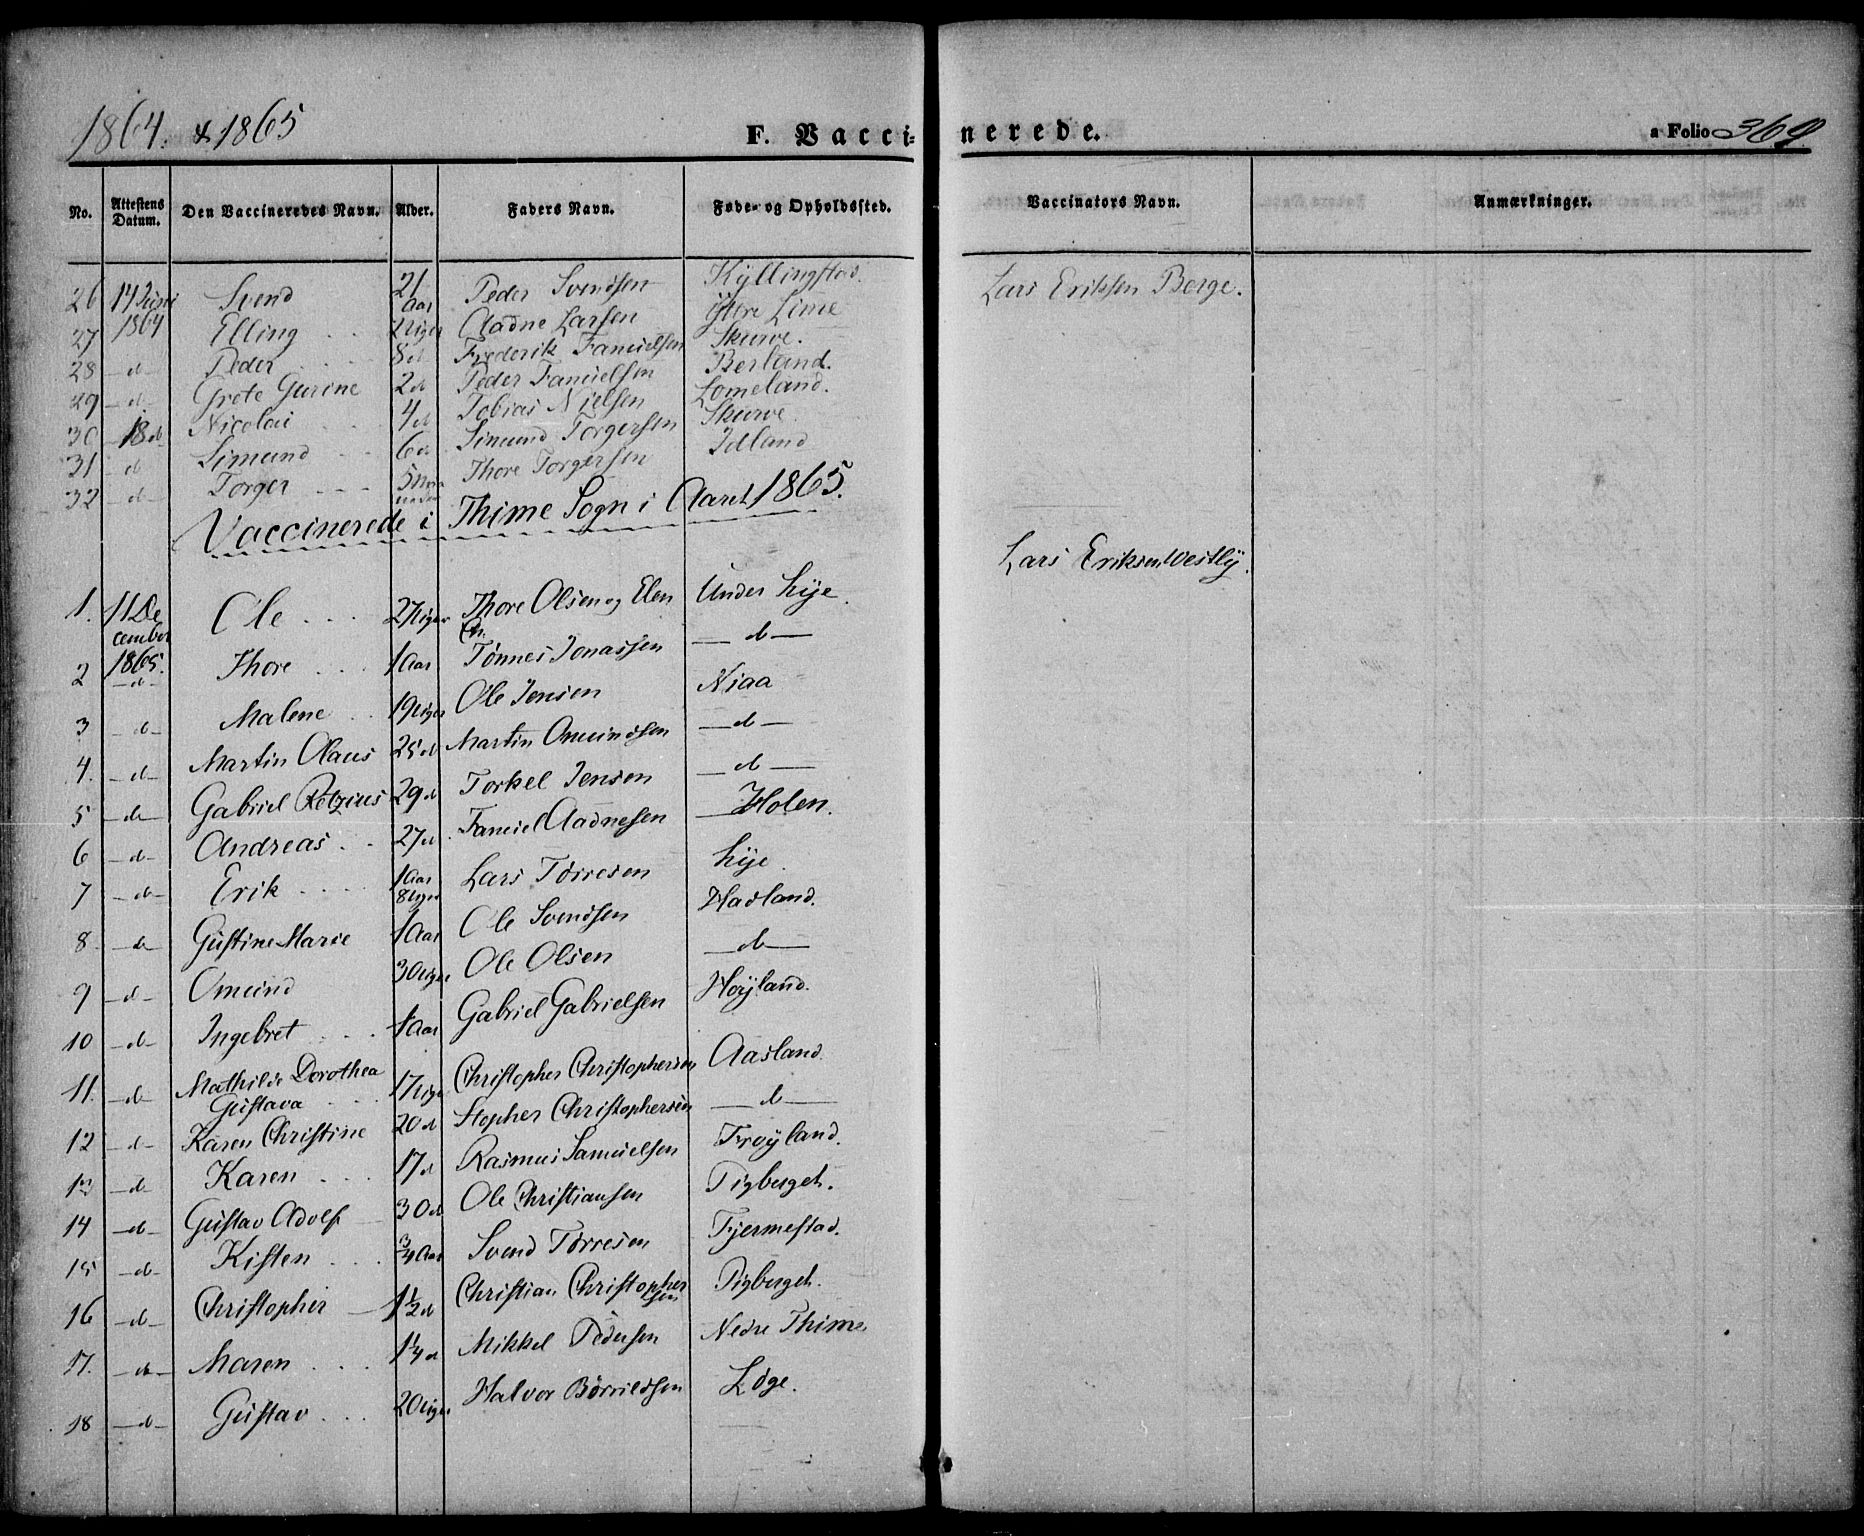 1864. & 1865 F. Vaccinerede. a Folio 369.
No. Attestens Datum. Den Vaccineredes Navn. Alder. Faders Navn. Føde- og Opholdssted. Vaccinators Navn. Anmærkninger.
26 14 Juni 1864 Svend 21 Aar Peder Svendsen Kyllingstad Lars Eriksen Berge.
27 Elling Uger Aadne Larsen Ytre Lime
28 -d- Peder 8 d Frederik Samuelsen Skurve.
29 -d- Grete Gurine 2 d Peder Samuelsen Berland.
30 18 d Nicolai 4 d Tobias Nielsen Lomeland.
31 -d- Simund 6 d Simund Torgersen Skurve
32 -d- Torger 5 Thore Torgersen Idland
Vaccinerede i Thime Sogn i Aaret 1865.
Lars Eriksen Westly.
1. 11 De cember 1865. Ole 27 Uger Thore Olsen og Elen Under Lye.
2 -d- Thore 1 Aar Tønnes Jonassen -d-
3 -d- Malene 19 Uger Ole Jensen Niaa
4. -d- Martin Olaus 25 d Martin Omundsen -d-
5 -d- Gabriel Retzius 29 d Torkel Jensen -d-
6 -d- Andreas 27 d. Samuel Aadnesen Holen.
7 -d- Erik 1 Aar 8 Uger Lars Tørresen Lye.
8. -d- Gustine Marie 1 Aar Ole Svendsen Hadland.
9 -d- Omund 30 Uger Ole Olsen -d-
10 -d- Ingebret 1 Aar Gabriel Gabrielsen Høyland.
11. -d- Mathilde Dorothea Gustava 17 Uger Christopher Christophersen Aasland.
12 -d- Karen Christine 20 d Stopher Christophersen -d-
13 -d- Karen 17 d Rasmus Samuelsen Frøyland.
14 -d- Gustav Adolf 30 d Ole Christiansen Tigberget.
15 -d- Kisten 3/4 Aar Svend Tørresen Fjermestad.
16 -d- Christopher 1 1/2 d Christian Christophersen Tigberget.
17. -d- Maren 1 1/4 d Mikkel Pedersen Nedre Thime
18 -d- Gustav 20 Uger Halvor Børrildsen Løge.